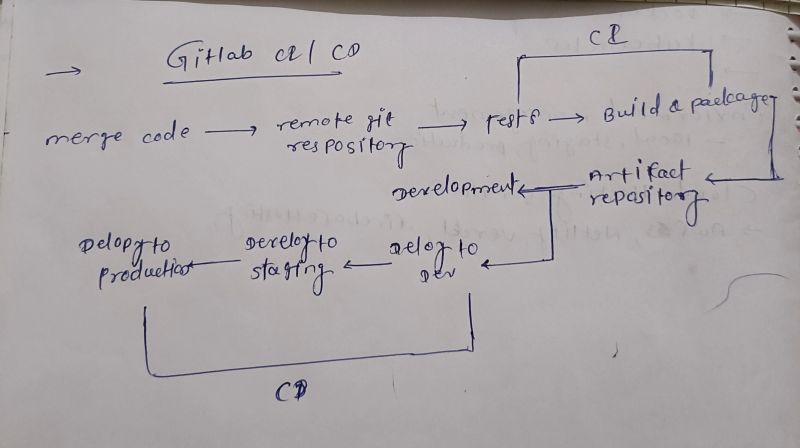 → Gitlab CI/CD
CI
merge code → remote git → tests → Build & package
respository
Development ← Artifact
repository
Delopy to ← Develoy to ← Deloy to
production staging Dev
CD